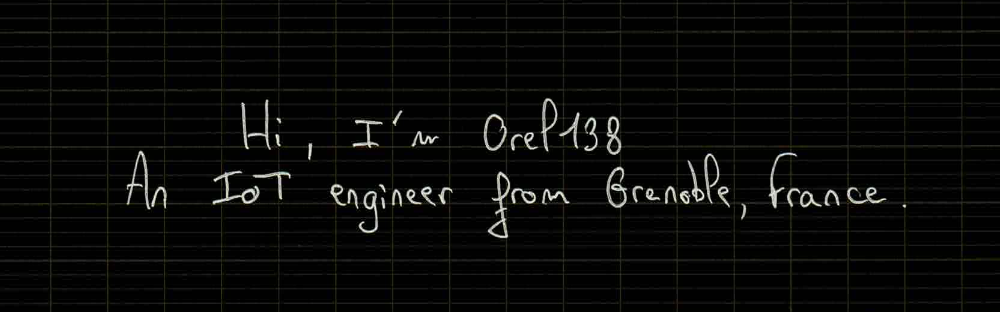 Hi, I'm Orel138
An IoT engineer from Grenoble, France.